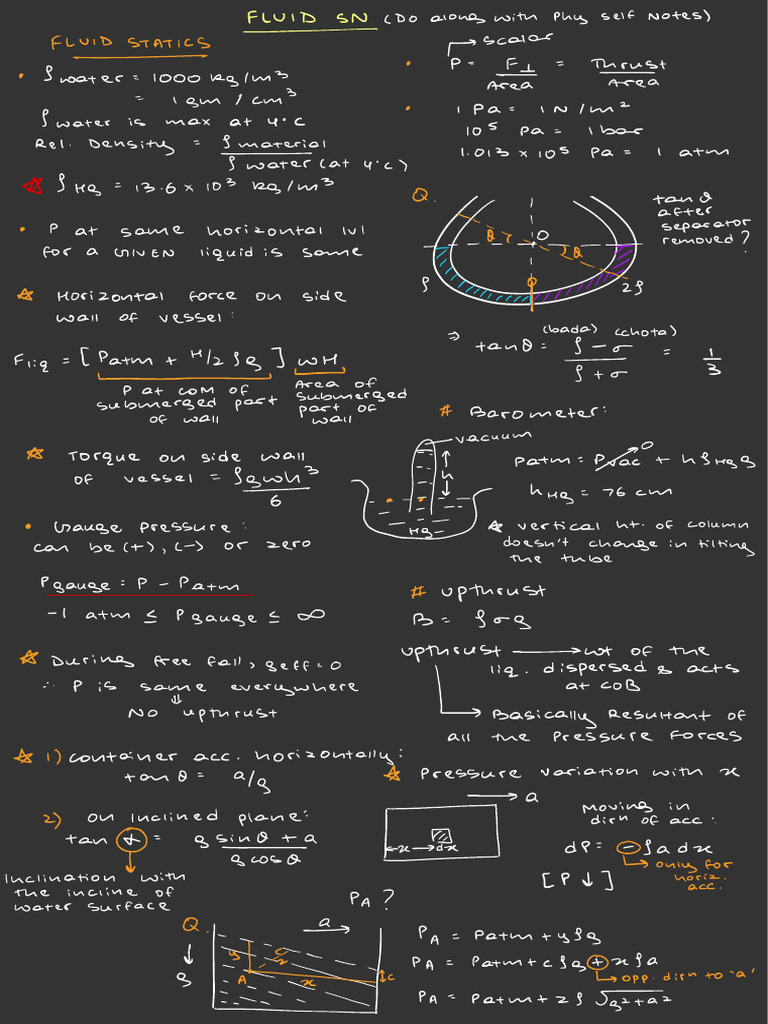 FLUID SN (Do along with Phy self Notes)
FLUID STATICS
• ρwater = 1000 kg/m³
= 1 gm / cm³
ρwater is max at 4°C
Rel. Density = ρmaterial / ρwater (at 4°C)
☆ ρHg = 13.6 × 10³ kg/m³
• P at same horizontal lvl
for a GIVEN liquid is same
☆ Horizontal force on side
wall of vessel:
Fliq = [Patm + H/2 ρg] wH
P at COM of
submerged part
of wall
Area of
submerged
part of
wall
☆ Torque on side wall
of vessel = ρgwh³ / 6
• Gauge Pressure:
can be (+), (-) or zero
Pgauge = P - Patm
-1 atm ≤ Pgauge ≤ ∞
☆ During free fall, geff = 0
∴ P is same everywhere
⇓
No upthrust
☆ 1) container acc. horizontally:
tan θ = a/g
2) on inclined plane:
tan α = g sinθ + a / g cosθ
Inclination with
the incline of
water surface
→ scalar
• P = F⊥ / Area = Thrust / Area
• 1 Pa = 1 N/m²
10⁵ Pa = 1 bar
1.013 × 10⁵ Pa = 1 atm
Q.
θ r O θ
ρ 2ρ
tanθ
after
separator
removed?
(bada) (chota)
⇒ tanθ = ρ - σ / ρ + σ = 1/3
# Barometer:
vacuum
h
Hg
Patm = Pvac⁰ + hρHg g
hHg = 76 cm
☆ vertical ht. of column
doesn't change in tilting
the tube
# upthrust
B = ρσg
upthrust → wt of the
liq. dispersed & acts
at COB
→ Basically Resultant of
all the Pressure Forces
☆ Pressure variation with x
→ a
x → dx
Moving in
dirn of acc.
dP = - ρa dx
→ only for
horiz.
acc.
[P ↓]
PA ?
Q.
a
g
y z c
A x
PA = Patm + yρg
PA = Patm + cρg + xρa
→ opp. dirn to 'a'
PA = Patm + zρ √g²+a²